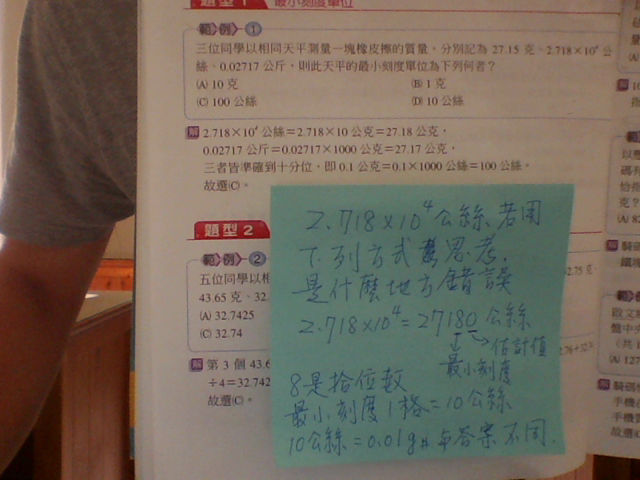 題型1 最小刻度單位
範例 1
三位同學以相同天平測量一塊橡皮擦的質量,分別記為 27.15 克、2.718×10⁴ 公
絲、0.02717 公斤,則此天平的最小刻度單位為下列何者?
(A) 10 克 (B) 1 克
(C) 100 公絲 (D) 10 公絲
解 2.718×10⁴ 公絲=2.718×10 公克=27.18 公克,
0.02717 公斤=0.02717×1000 公克=27.17 公克,
三者皆準確到十分位,即 0.1 公克=0.1×1000 公絲=100 公絲。
故選(C)。
題型2
範例 2
五位同學以相
43.65 克、32
(A) 32.7425
(C) 32.74
解 第 3 個 43.6
÷4=32.742
故選(C)。
2.718×10⁴公絲 若用
下列方式 思考,
是什麼地方錯誤
2.718×10⁴=27180 公絲
估計值
最小刻度
8是拾位數
最小刻度1格=10公絲
10公絲=0.01g 與答案不同.